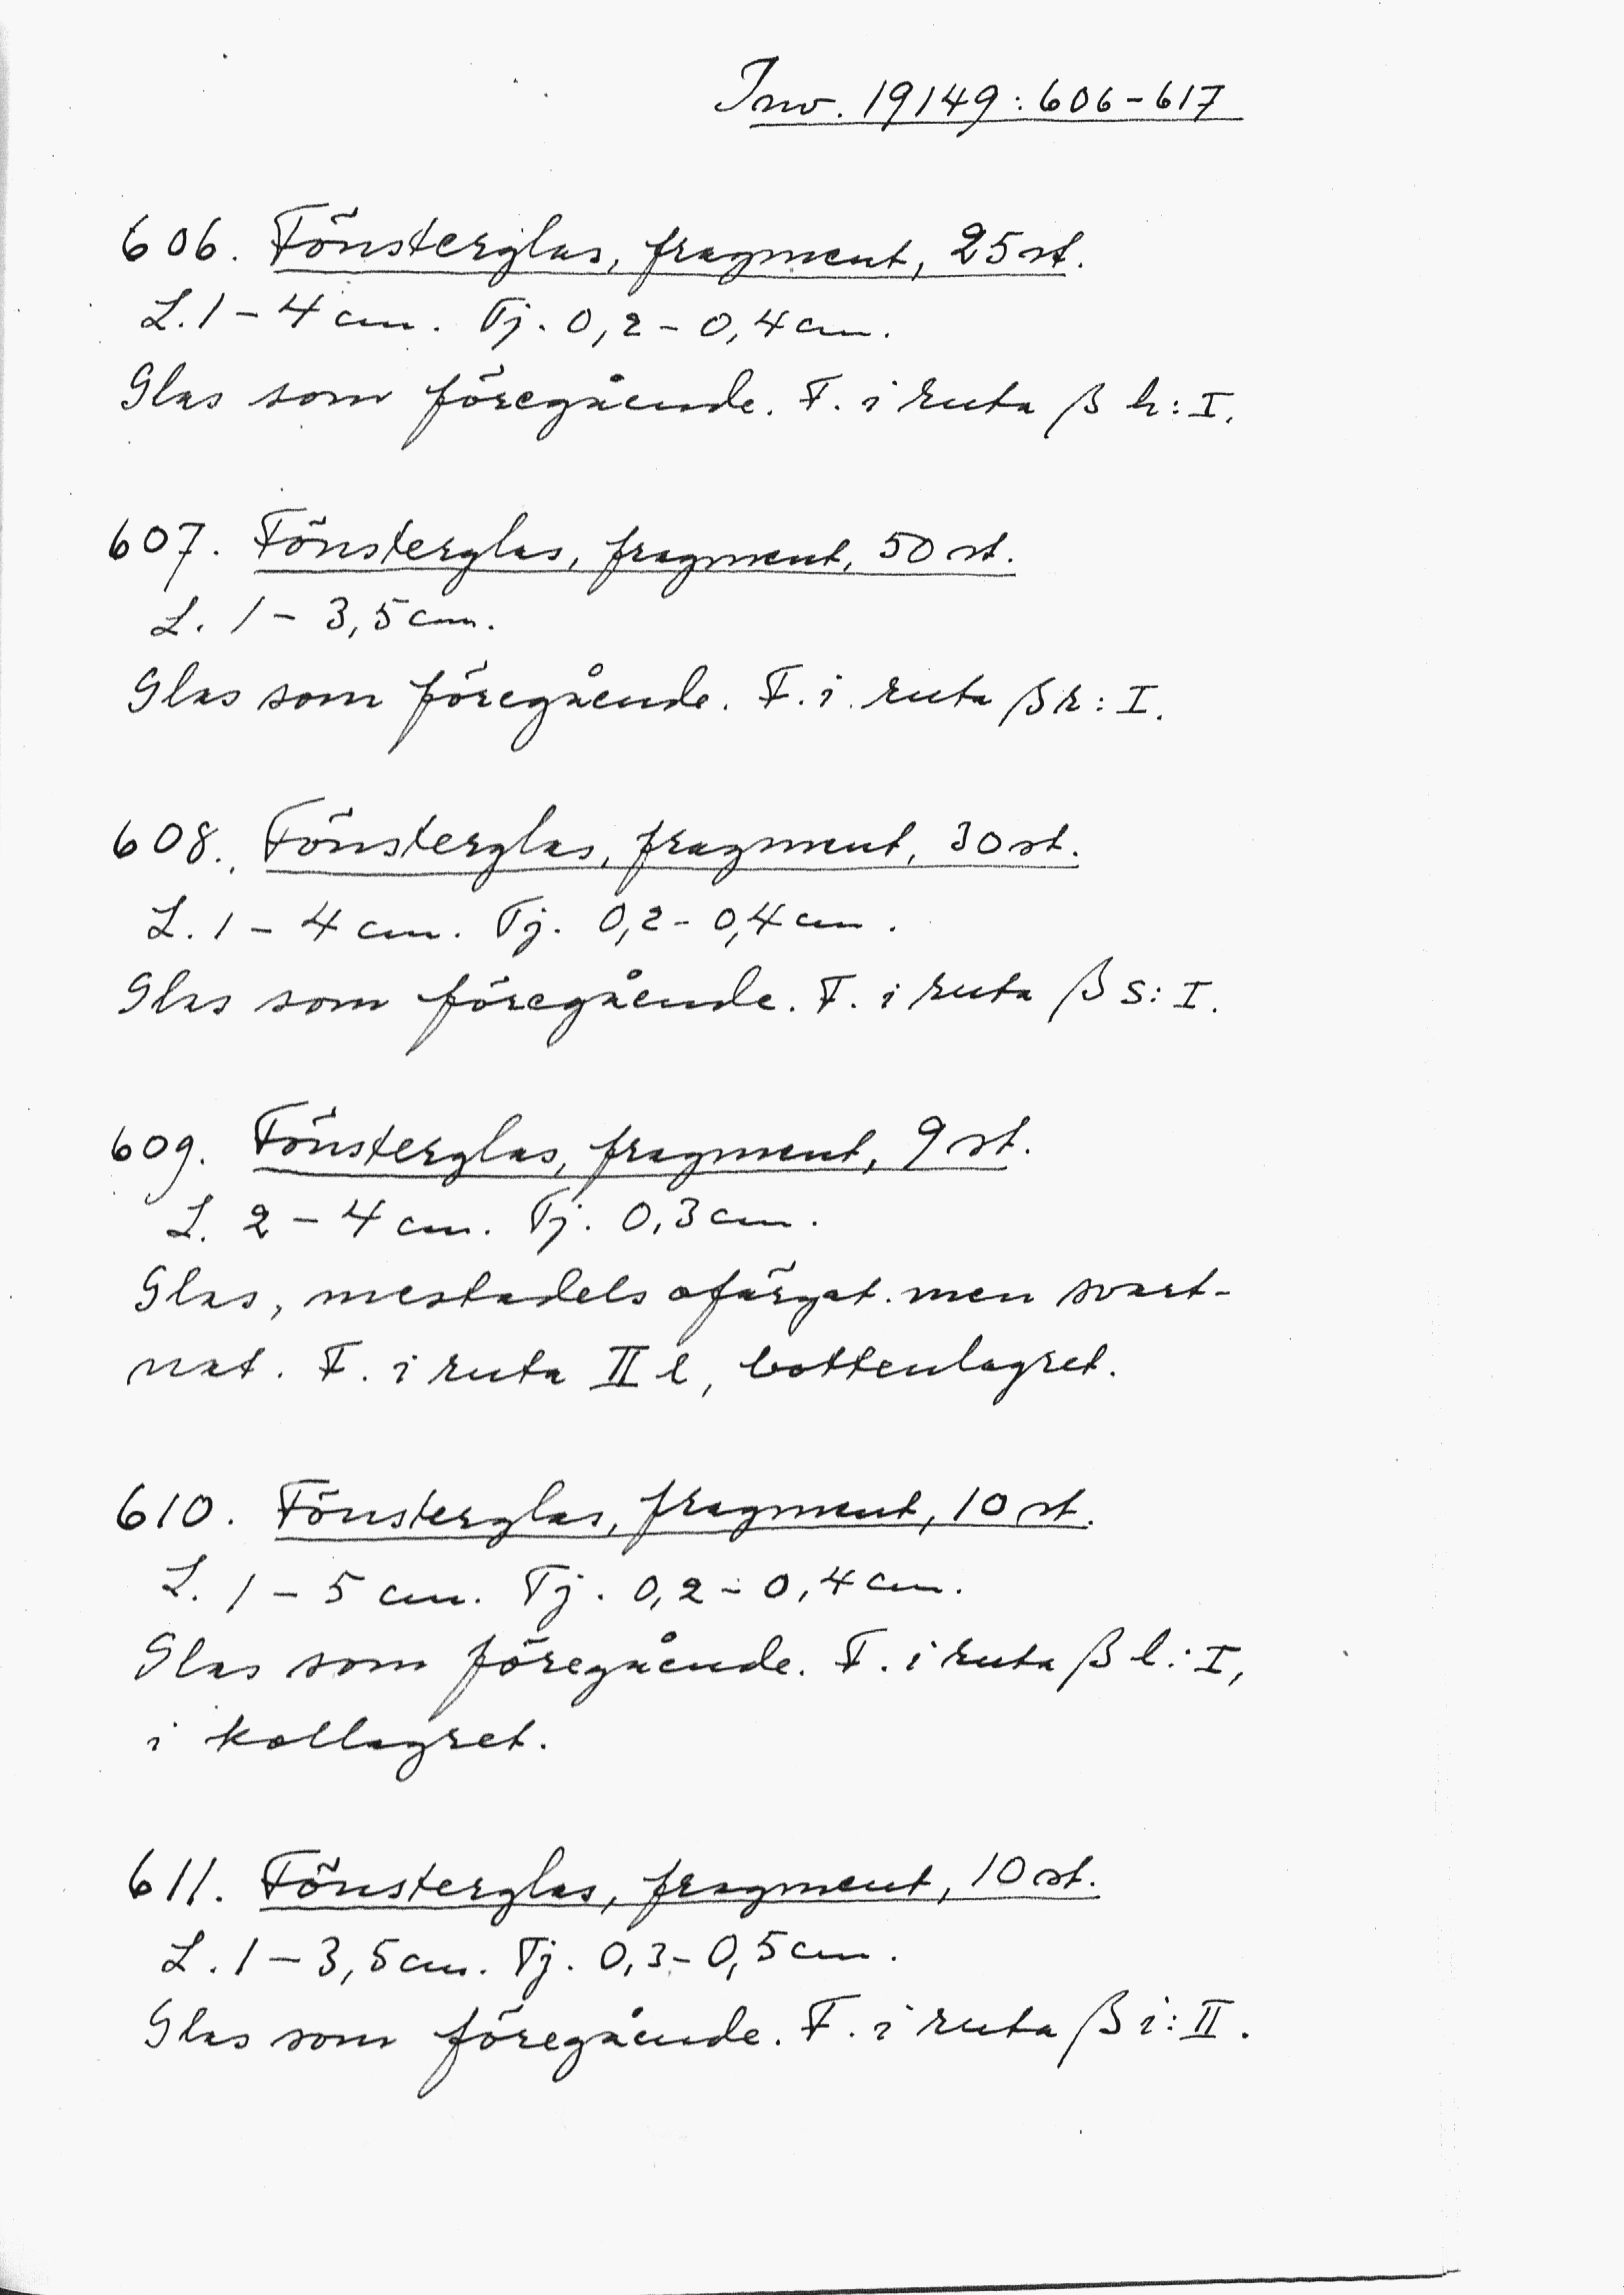 Inv. 19149:606-617
606. Fönsterglas, fragment, 25 st.
L. 1 - 4 cm. Tj. 0,2 - 0,4 cm.
Glas som föregående. F. i ruta β h: I.
607. Fönsterglas, fragment, 50 st.
L. 1 - 3,5 cm.
Glas som föregående. F. i ruta β r: I.
608. Fönsterglas, fragment, 30 st.
L. 1 - 4 cm. Tj. 0,2 - 0,4 cm.
Glas som föregående. F. i ruta β s: I.
609. Fönsterglas, fragment, 9 st.
L. 2 - 4 cm. Tj. 0,3 cm.
Glas, mestadels ofärgat men svart-
nat. F. i ruta II l, bottenlagret.
610. Fönsterglas, fragment, 10 st.
L. 1 - 5 cm. Tj. 0,2 - 0,4 cm.
Glas som föregående. F. i ruta β l: I,
i kollagret.
611. Fönsterglas, fragment, 10 st.
L. 1 - 3,5 cm. Tj. 0,3 - 0,5 cm.
Glas som föregående. F. i ruta β i: II.